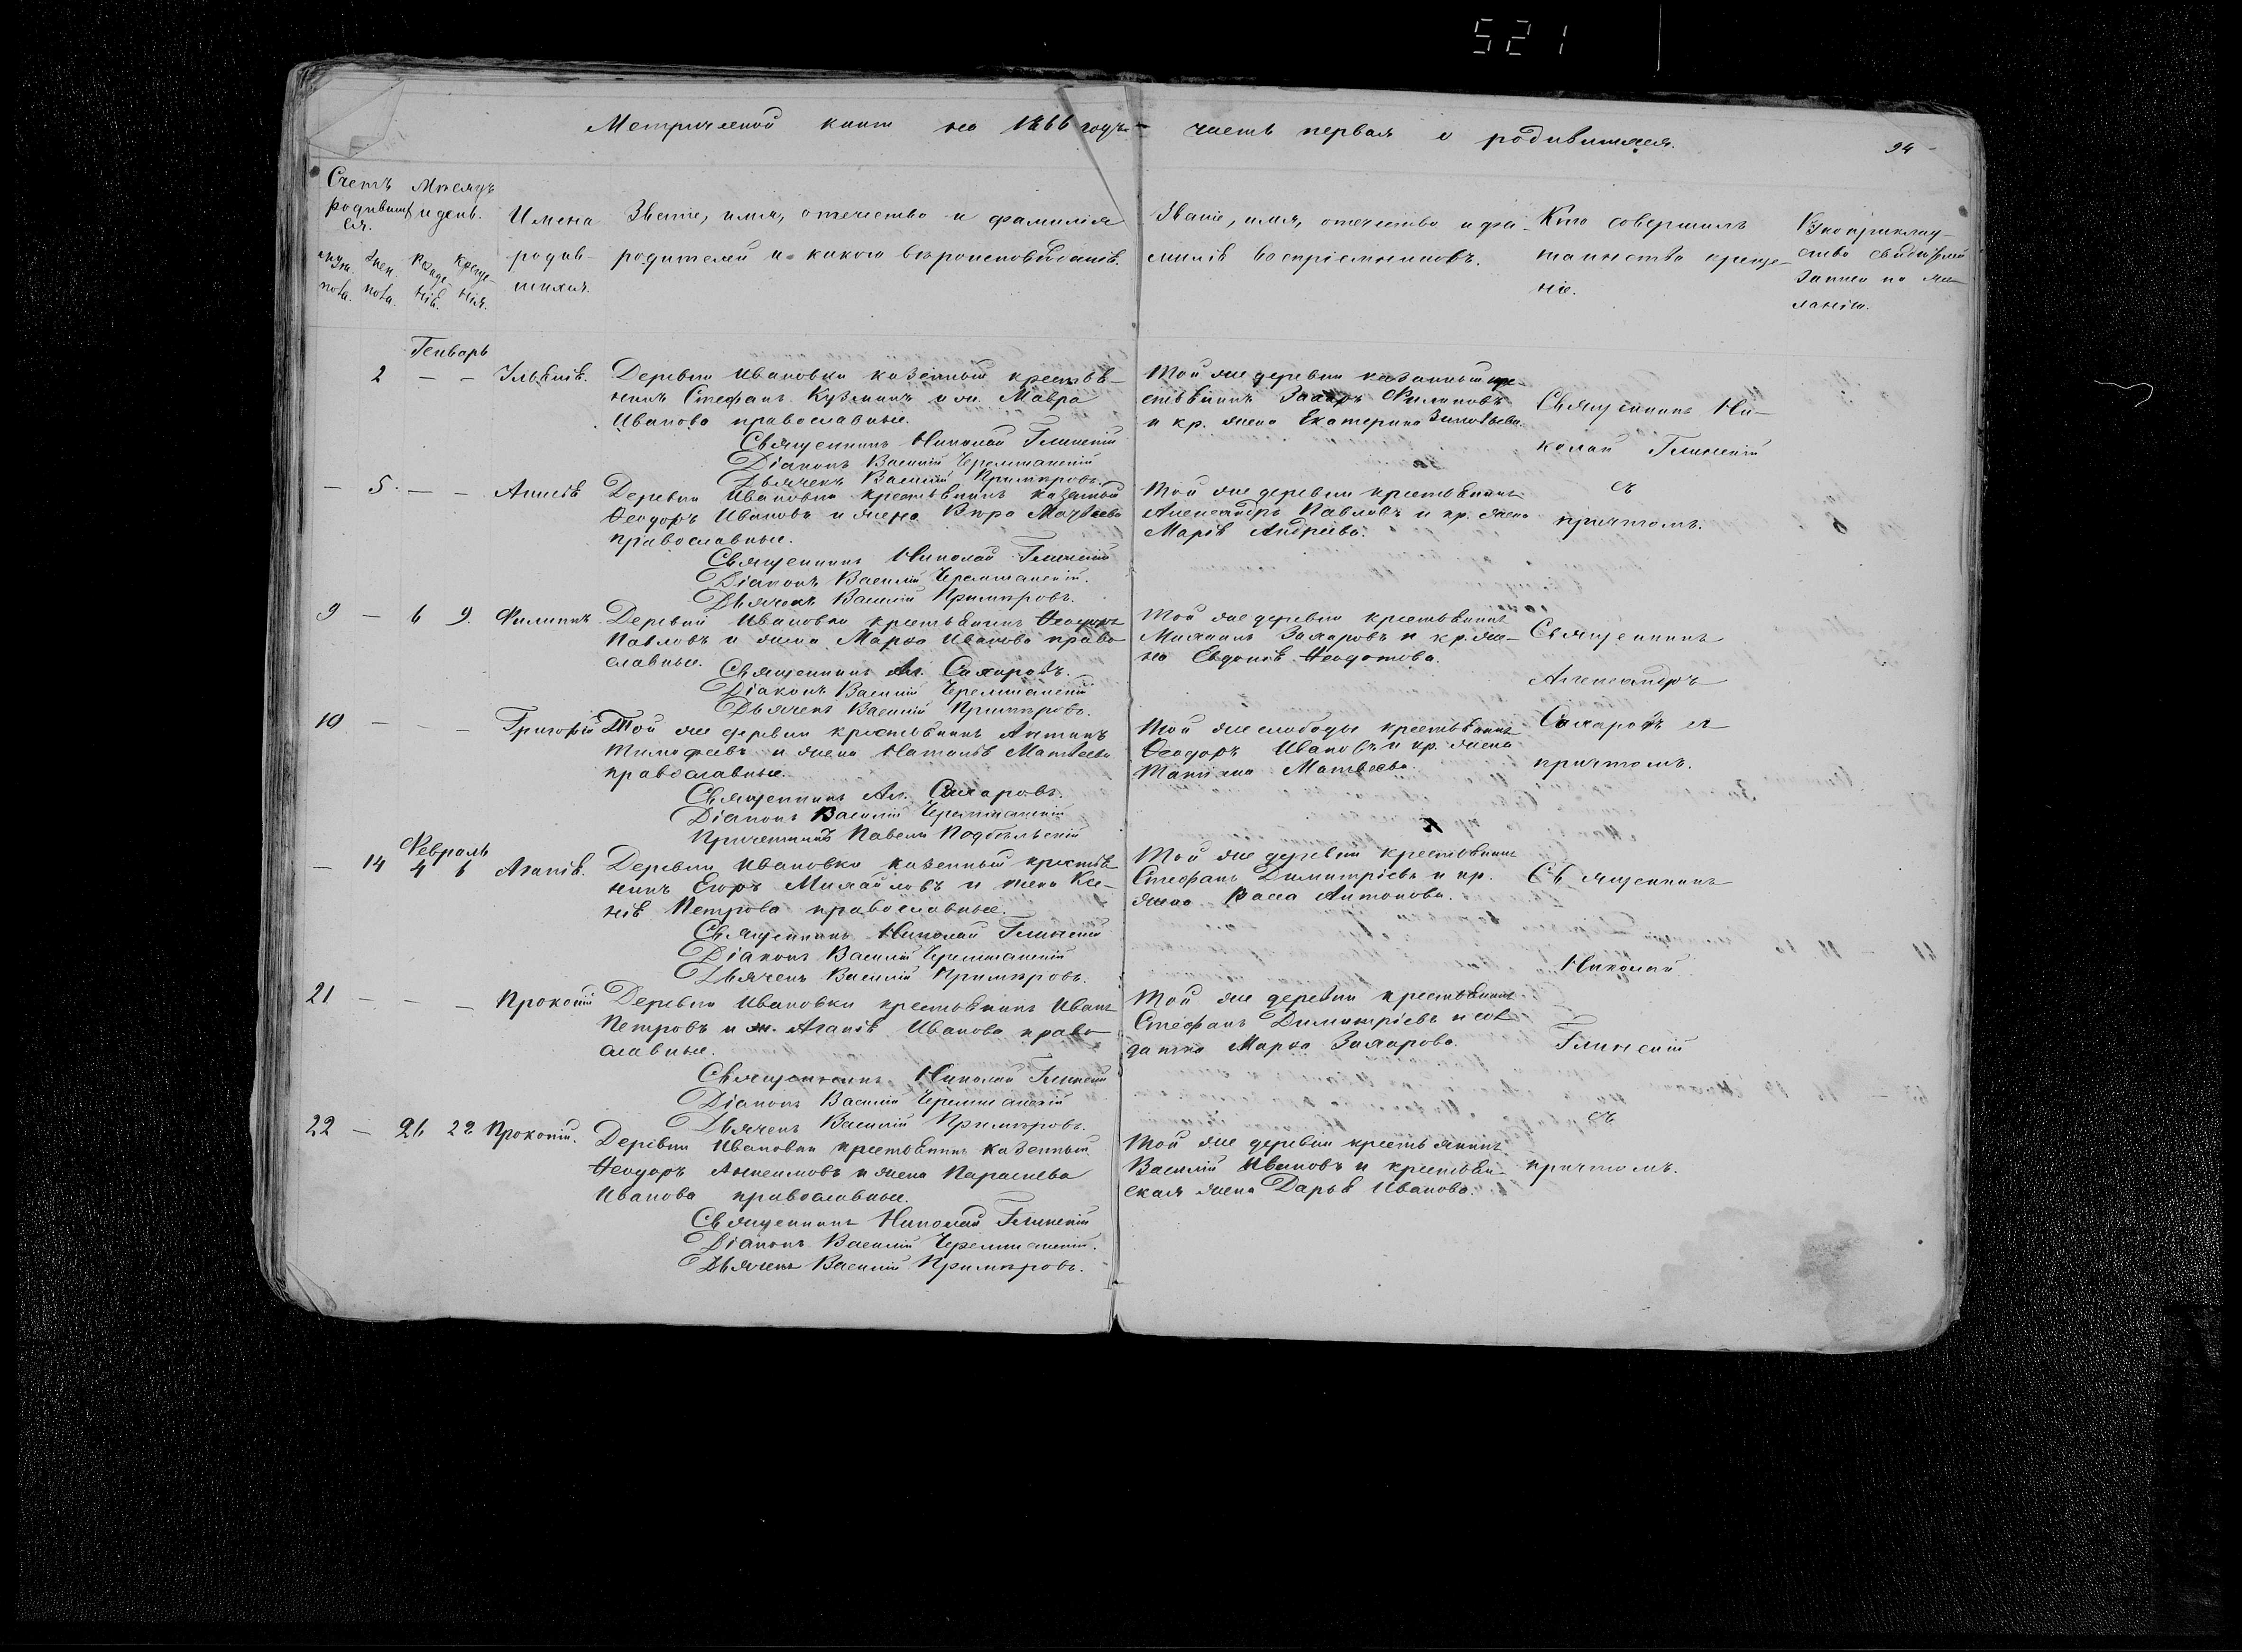 521
Метрической книги на 1866 годъ часть первая о родившихся.
94
Счетъ родившихся.
Мѣсяцъ и день.
Имена родившихся.
Званіе, имя, отечество и фамилія
родителей и какого вѣроисповѣданія.
Званіе, имя, отечество и фа-
милія воспріемниковъ.
Кто совершилъ
таинство креще-
нія.
Генварь
2 — —
Деревни Ивановки казенный крестья-
нинъ Стефанъ Кузминъ и ж. Мавра
Иванова православные.
Священникъ Николай Глинскій
Діаконъ Василій Черемшанскій
Дьячекъ Василій Примѣровъ.
Той же деревни казенный кре-
стьянинъ Захаръ Филиповъ
и кр. жена Екатерина
Священникъ Ни-
колай Глинскій
— 5 — —
Деревни Ивановки крестьянинъ казенный
Ѳеодоръ Ивановъ и жена Вѣра Матвеева
православные.
Священникъ Николай Глинскій
Діаконъ Василій Черемшанскій.
Дьячекъ Василій Примѣровъ.
Той же деревни крестьянинъ
Александръ Павловъ и кр. жена
Марія Андреева.
съ
причтомъ.
9 — 6 9. Филиппъ
Деревни Ивановки крестьянинъ Ѳеодоръ
Павловъ и жена Марѳа Иванова право-
славные.
Священникъ Ал. Сахаровъ.
Діаконъ Василій Черемшанскій
Дьячекъ Василій Примѣровъ.
Той же деревни крестьянинъ
Михаилъ Захаровъ и кр. же-
на Евдокія Ѳеодотова.
Священникъ
Александръ
10 — — — Григорій
Той же деревни крестьянинъ Антипъ
Тимофеевъ и жена Наталія Матвеева
православные.
Священникъ Ал. Сахаровъ.
Діаконъ Василій Черемшанскій
Причетникъ Павелъ Подбѣльскій
Той же слободы крестьянинъ
Ѳеодоръ Ивановъ и кр. жена
Татіяна Матвеева.
Сахаровъ съ
причтомъ.
Февраль
— 14 4 6 Агапія.
Деревни Ивановки казенный крестья-
нинъ Егоръ Михайловъ и жена Ксе-
нія Петрова православные.
Священникъ Николай Глинскій
Діаконъ Василій Черемшанскій
Дьячекъ Василій Примѣровъ.
Той же деревни крестьянинъ
Стефанъ Димитріевъ и кр.
жена Васса Антонова.
Священникъ
Николай
21 — — — Прокопій
Деревни Ивановки крестьянинъ Иванъ
Петровъ и ж. Агапія Иванова право-
славные.
Священникъ Николай Глинскій
Діаконъ Василій Черемшанскій
Дьячекъ Василій Примѣровъ.
Той же деревни крестьянинъ
Стефанъ Димитріевъ и сол-
датка Марѳа Захарова.
Глинскій
22 — 21 22 Прокопій.
Деревни Ивановки крестьянинъ казенный
Ѳеодоръ Анисимовъ и жена Параскева
Иванова православные.
Священникъ Николай Глинскій
Діаконъ Василій Черемшанскій.
Дьячекъ Василій Примѣровъ.
Той же деревни крестьянинъ
Василій Ивановъ и крестьян-
ская жена Дарья Иванова.
съ
причтомъ.